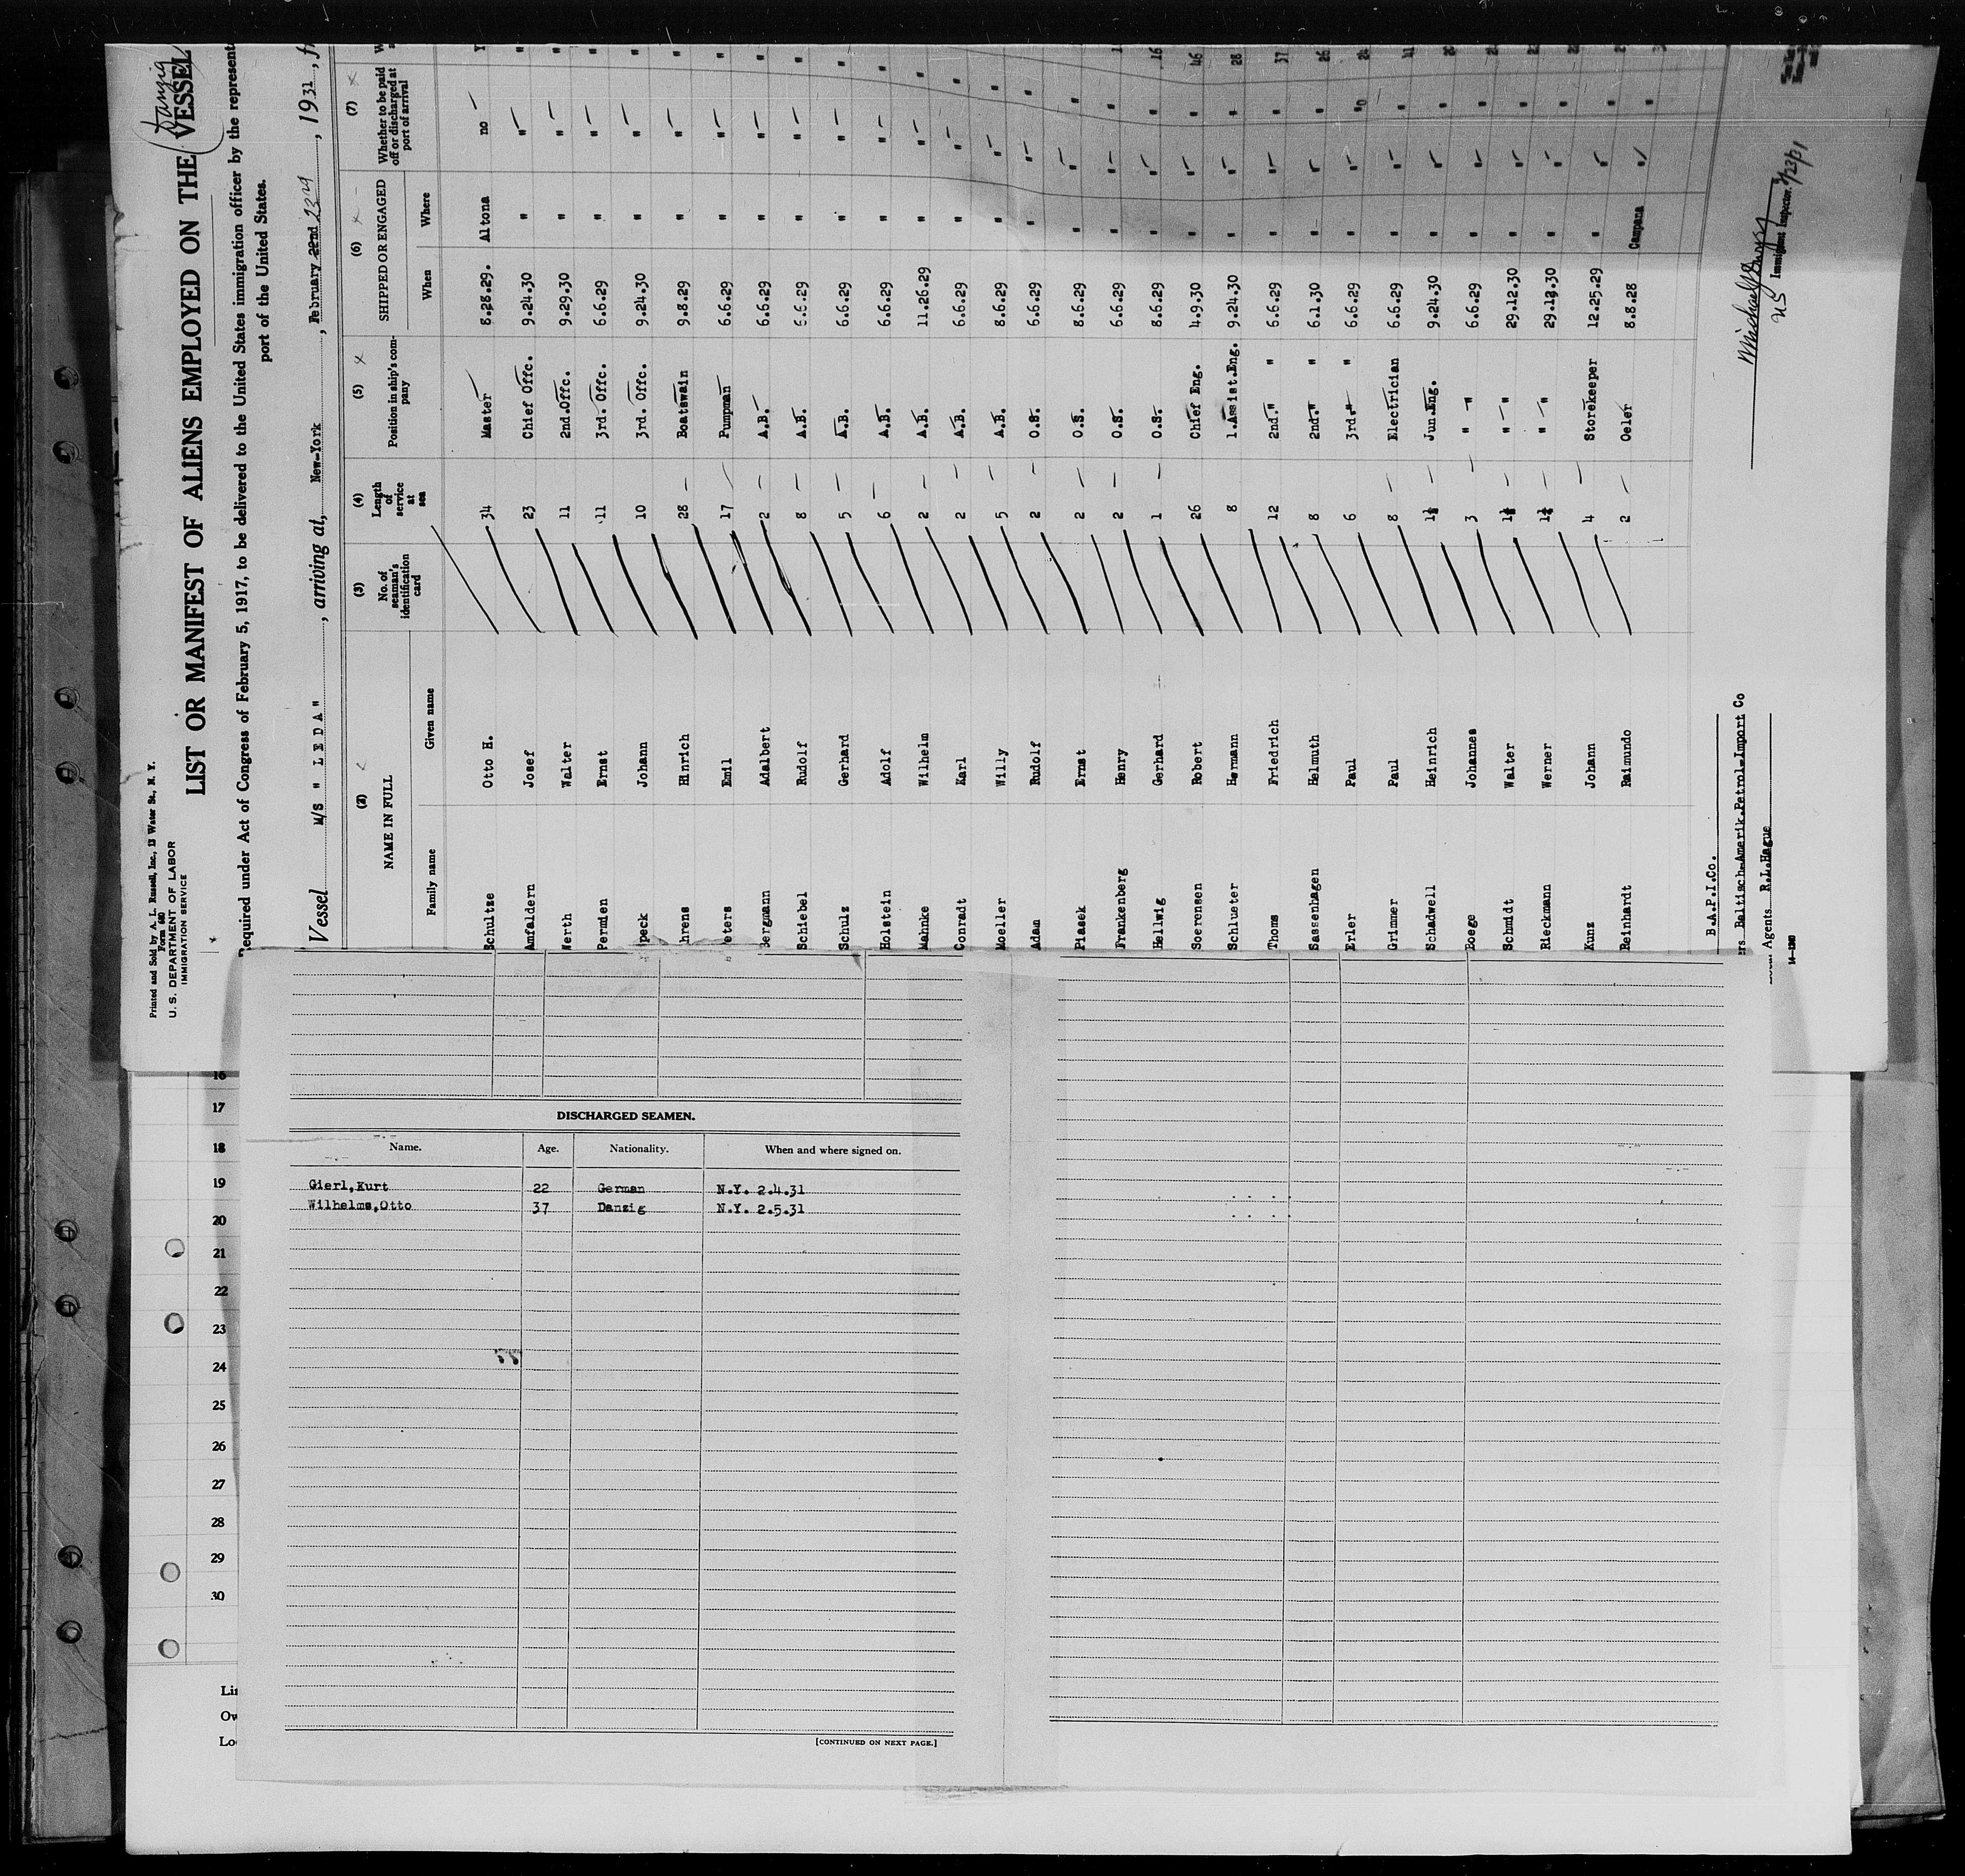 Printed and Sold by A. L. Russell, Inc., 13 Water St., N. Y.
Form 680
U. S. DEPARTMENT OF LABOR
IMMIGRATION SERVICE
LIST OR MANIFEST OF ALIENS EMPLOYED ON THE VESSEL
(Danzig
Required under Act of Congress of February 5, 1917, to be delivered to the United States immigration officer by the represent
port of the United States.
Vessel M/S " L E D A " , arriving at, New-York , February 22nd 23rd , 1931 , fr
(2) (3) (4) (5) (6) (7)
NAME IN FULL
Family name Given name
No. of seaman's identification card
Length of service at sea
Position in ship's company
SHIPPED OR ENGAGED
When Where
Whether to be paid off or discharged at port of arrival
Schultze Otto H. 34 Master 8.28.29. Altona no
Amfaldern Josef 23 Chief Offc. 9.24.30 " "
Werth Walter 11 2nd.Offc. 9.29.30 " "
Permien Ernst 11 3rd. Offc. 6.6.29 " "
peck Johann 10 3rd. Offc. 9.24.30 " "
hrens Hinrich 28 Boatswain 9.8.29 " "
eters Emil 17 Pumpman 6.6.29 " "
Bergmann Adalbert 2 A.B. 6.6.29 " "
Schiebel Rudolf 8 A.B. 6.6.29 " "
Schulz Gerhard 5 A.B. 6.6.29 " "
Holstein Adolf 6 A.B. 6.6.29 " "
Mahnke Wilhelm 2 A.B. 11.26.29 " "
Conradt Karl 2 A.B. 6.6.29 " "
Moeller Willy 5 A.B. 8.6.29 " "
Adam Rudolf 2 O.S. 6.6.29 " "
Piasek Ernst 2 O.S. 8.6.29 " "
Frankenberg Henry 2 O.S. 6.6.29 " "
Hellwig Gerhard 1 O.S. 8.6.29 " " 16
Soerensen Robert 26 Chief Eng. 4.9.30 " " 46
Schlueter Hermann 8 1.Assist.Eng. 9.24.30 " " 28
Thoms Friedrich 12 2nd." " 6.6.29 " " 37
Sassenhagen Helmuth 8 2nd." " 6.1.30 " " 26
Erler Paul 6 3rd." " 6.6.29 " " 24
Grimmer Paul 8 Electrician 6.6.29 " " 41
Schadwell Heinrich 1½ Jun.Eng. 9.24.30 " "
Boege Johannes 3 " " 6.6.29 " "
Schmidt Walter 1½ " " 29.12.30 " "
Rieckmann Werner 1½ " " 29.12.30 " "
Kunz Johann 4 Storekeeper 12.25.29 " "
Reinhardt Raimundo 2 Oeler 8.8.28 Campana "
B.A.P.I.Co.
rs Baltisch-Amerik.Petrol-Import Co
Agents R.L.Hague
14-1240
US Immigrant Inspector.
16
17
18
19
20
21
22
23
24
25
26
27
28
29
30
Lin
Ow
Loc
DISCHARGED SEAMEN.
Name. Age. Nationality. When and where signed on.
Gierl,Kurt 22 German N.Y. 2.4.31
Wilhelms,Otto 37 Danzig N.Y. 2.5.31
[CONTINUED ON NEXT PAGE.]